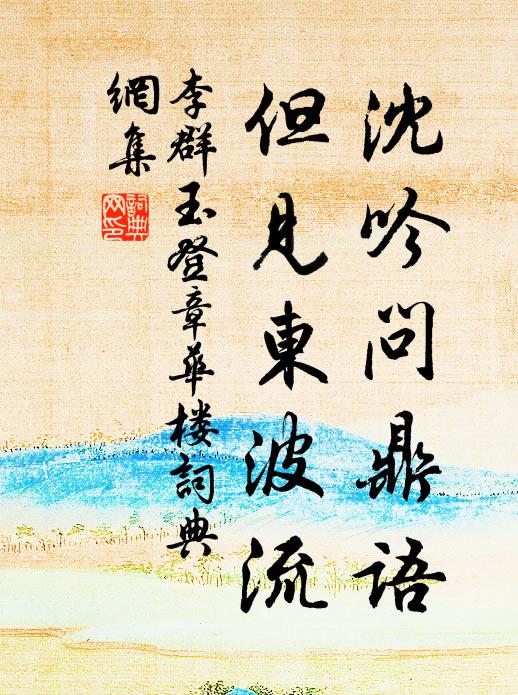 沈吟問鼎語
但見東波流
李群玉登章華楼詞典
網集
詞典
网印